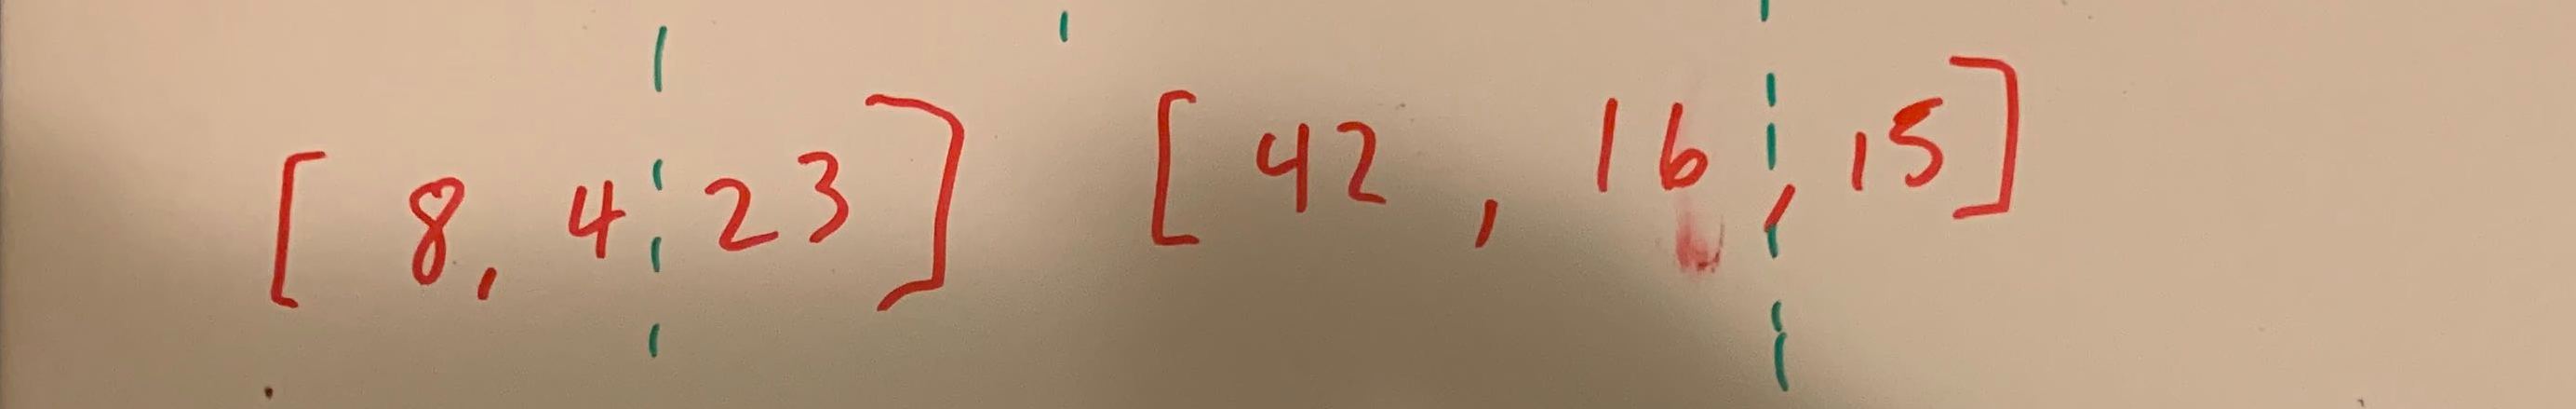 [ 8, 4 23 ] [ 42 , 16 , 15 ]